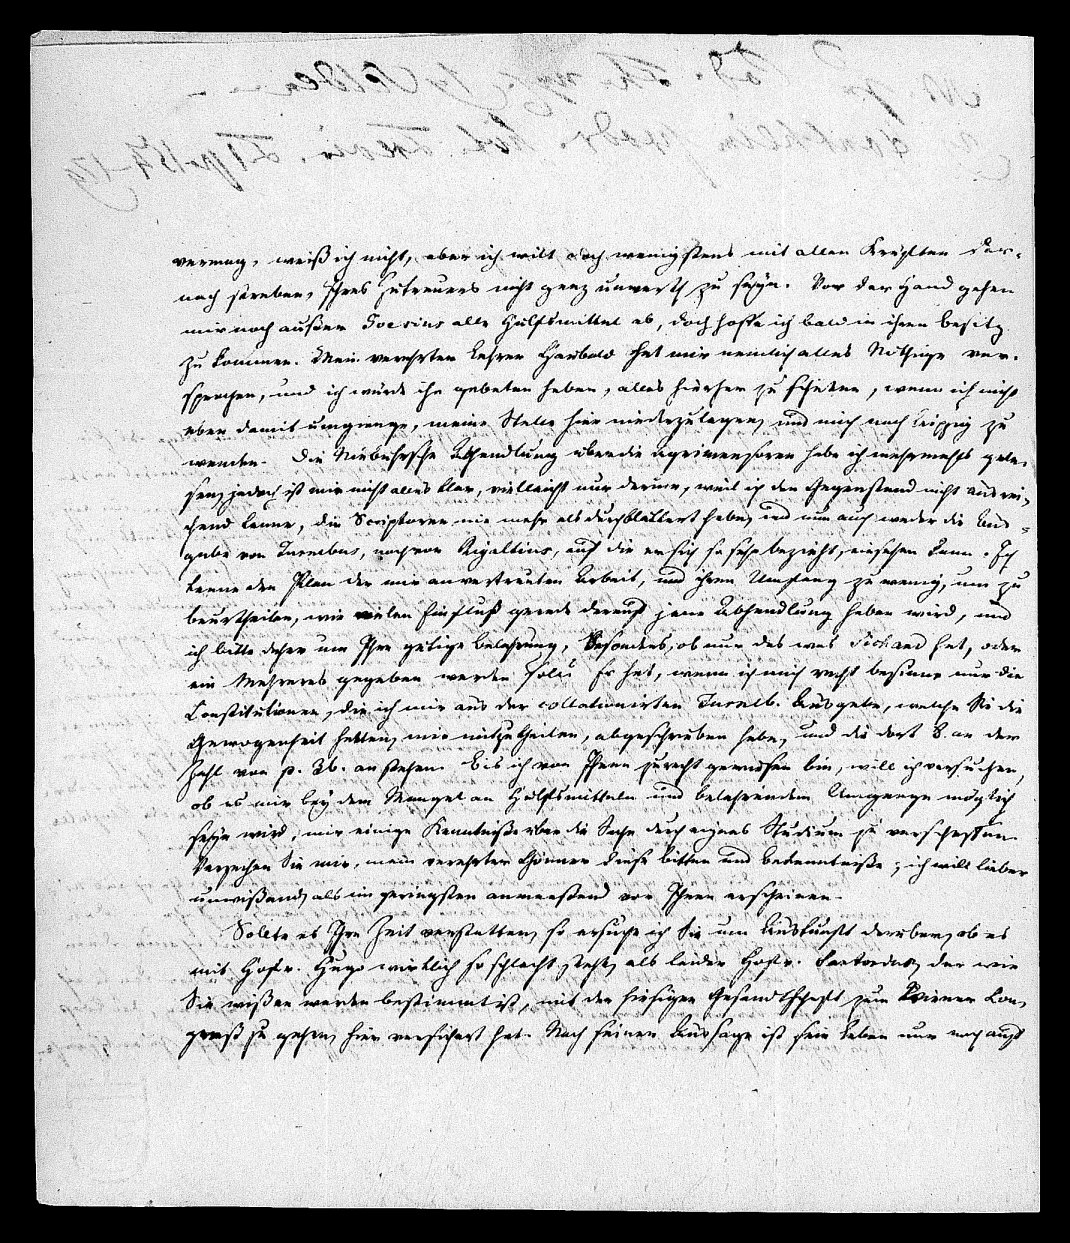 vermag, weiß ich nicht, aber ich will doch wenigstens mit allen Kräften dar-
nach streben, Ihres Zutrauens nicht ganz unwerth zu seyn. Vor der Hand gehen
mir noch außer Goesius alle Hülfsmittel ab, doch hoffe ich bald in ihren Besitz
zu kommen. Mein verehrter Lehrer Haubold hat mir nemlich alles Nöthige ver-
sprochen, und ich würde ihn gebeten haben, alles hierher zu schicken, wenn ich nicht
eben damit umgienge, meine Stelle hier niederzulegen, und mich nach Leipzig zu
wenden. Die Niebuhrsche Abhandlung über die Agrimensoren habe ich mehrmahls gele-
sen, jedoch ist mir nicht alles klar, vielleicht nur darum, weil ich den Gegenstand nicht ausrei-
chend kenne, die Scriptoren nie mehr als durchblättert habe, und nun auch weder die Aus-
gabe von Turnebus, noch von Rigaltius, auf die er sich so sehr bezieht, einsehen kann. Ich
kenne den Plan der mir anvertrauten Arbeit, und ihren Umfang zu wenig, um zu
beurtheilen, wie vielen Einfluß gerade darauf jene Abhandlung haben wird, und
ich bitte daher um Ihre gütige Belehrung, besonders, ob nur das was Sichard hat, oder
ein Mehreres gegeben werden solle? Er hat, wenn ich mich recht besinne nur die
Constitutionen, die ich mir aus der collationirten Turneb. Ausgabe, welche Sie die
Gewogenheit hatten, mir mitzutheilen, abgeschrieben habe, und die dort 8. an der
Zahl von p. 36. an stehen. Bis ich von Ihnen zurecht gewiesen bin, will ich versuchen,
ob es mir bey dem Mangel an Hülfsmitteln und belehrendem Umgange möglich
seyn wird, mir einige Kenntniße über die Sache durch eignes Studium zu verschaffen.
Verzeihen Sie mir, mein verehrter Gönner diese Bitten und Bekenntniße; ich will lieber
unwißend, als im geringsten anmaßend vor Ihnen erscheinen.
Sollte es Ihre Zeit verstatten, so ersuche ich Sie um Auskunft darüber, ob es
mit Hofr. Hugo wirklich so schlecht steht, als leider Hofr. der wie
Sie wißen werden bestimmt ist, mit der hiesigen Gesandtschaft zum Wiener Con-
greß zu gehen, hier versichert hat. Nach seiner Aussage ist sein Leben nur noch auf